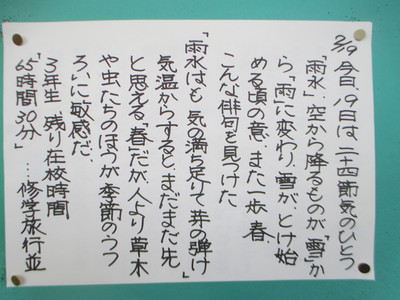 2/19 今日、19日は二十四節気のひとつ
「雨水」。空から降るものが、"雪"か
ら、「雨」に変わり、雪が、とけ始
める頃の意、また一歩春
こんな俳句を見つけた
「雨水はも 気の満ち足りて 井の弾け」
気温からすると、まだまだ先
と思える「春」だが、人より草木
や虫たちのほうが季節のうつ
ろいに敏感だ。
3年生 残り在校時間
「65時間30分」…修学旅行並